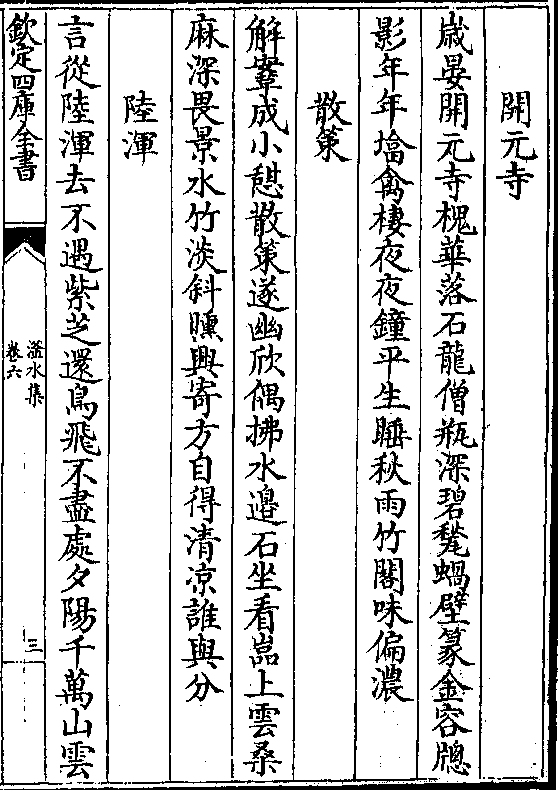 開元寺
嵗晏開元寺槐華落石龍僧瓶深碧甃蝸壁篆金容牕
影年年墖禽棲夜夜鐘平生睡秋雨竹閣味偏濃
散策
解鞌成小憇散策遂幽欣偶拂水邉石坐看嵓上雲桑
麻深畏景水竹淡斜曛興寄方自得清凉誰與分
陸渾
言從陸渾去不遇紫芝還鳥飛不盡處夕陽千萬山雲
欽定四庫全書
滏水集
卷六
三